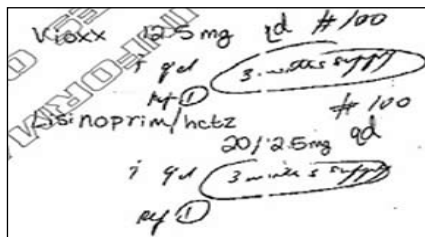 Vioxx 12.5 mg qd #100
i qd 3 months supply
Ref 1
#100
Lisinoprim/hctz
20/12.5mg qd
i qd 3 months supply
Ref 1